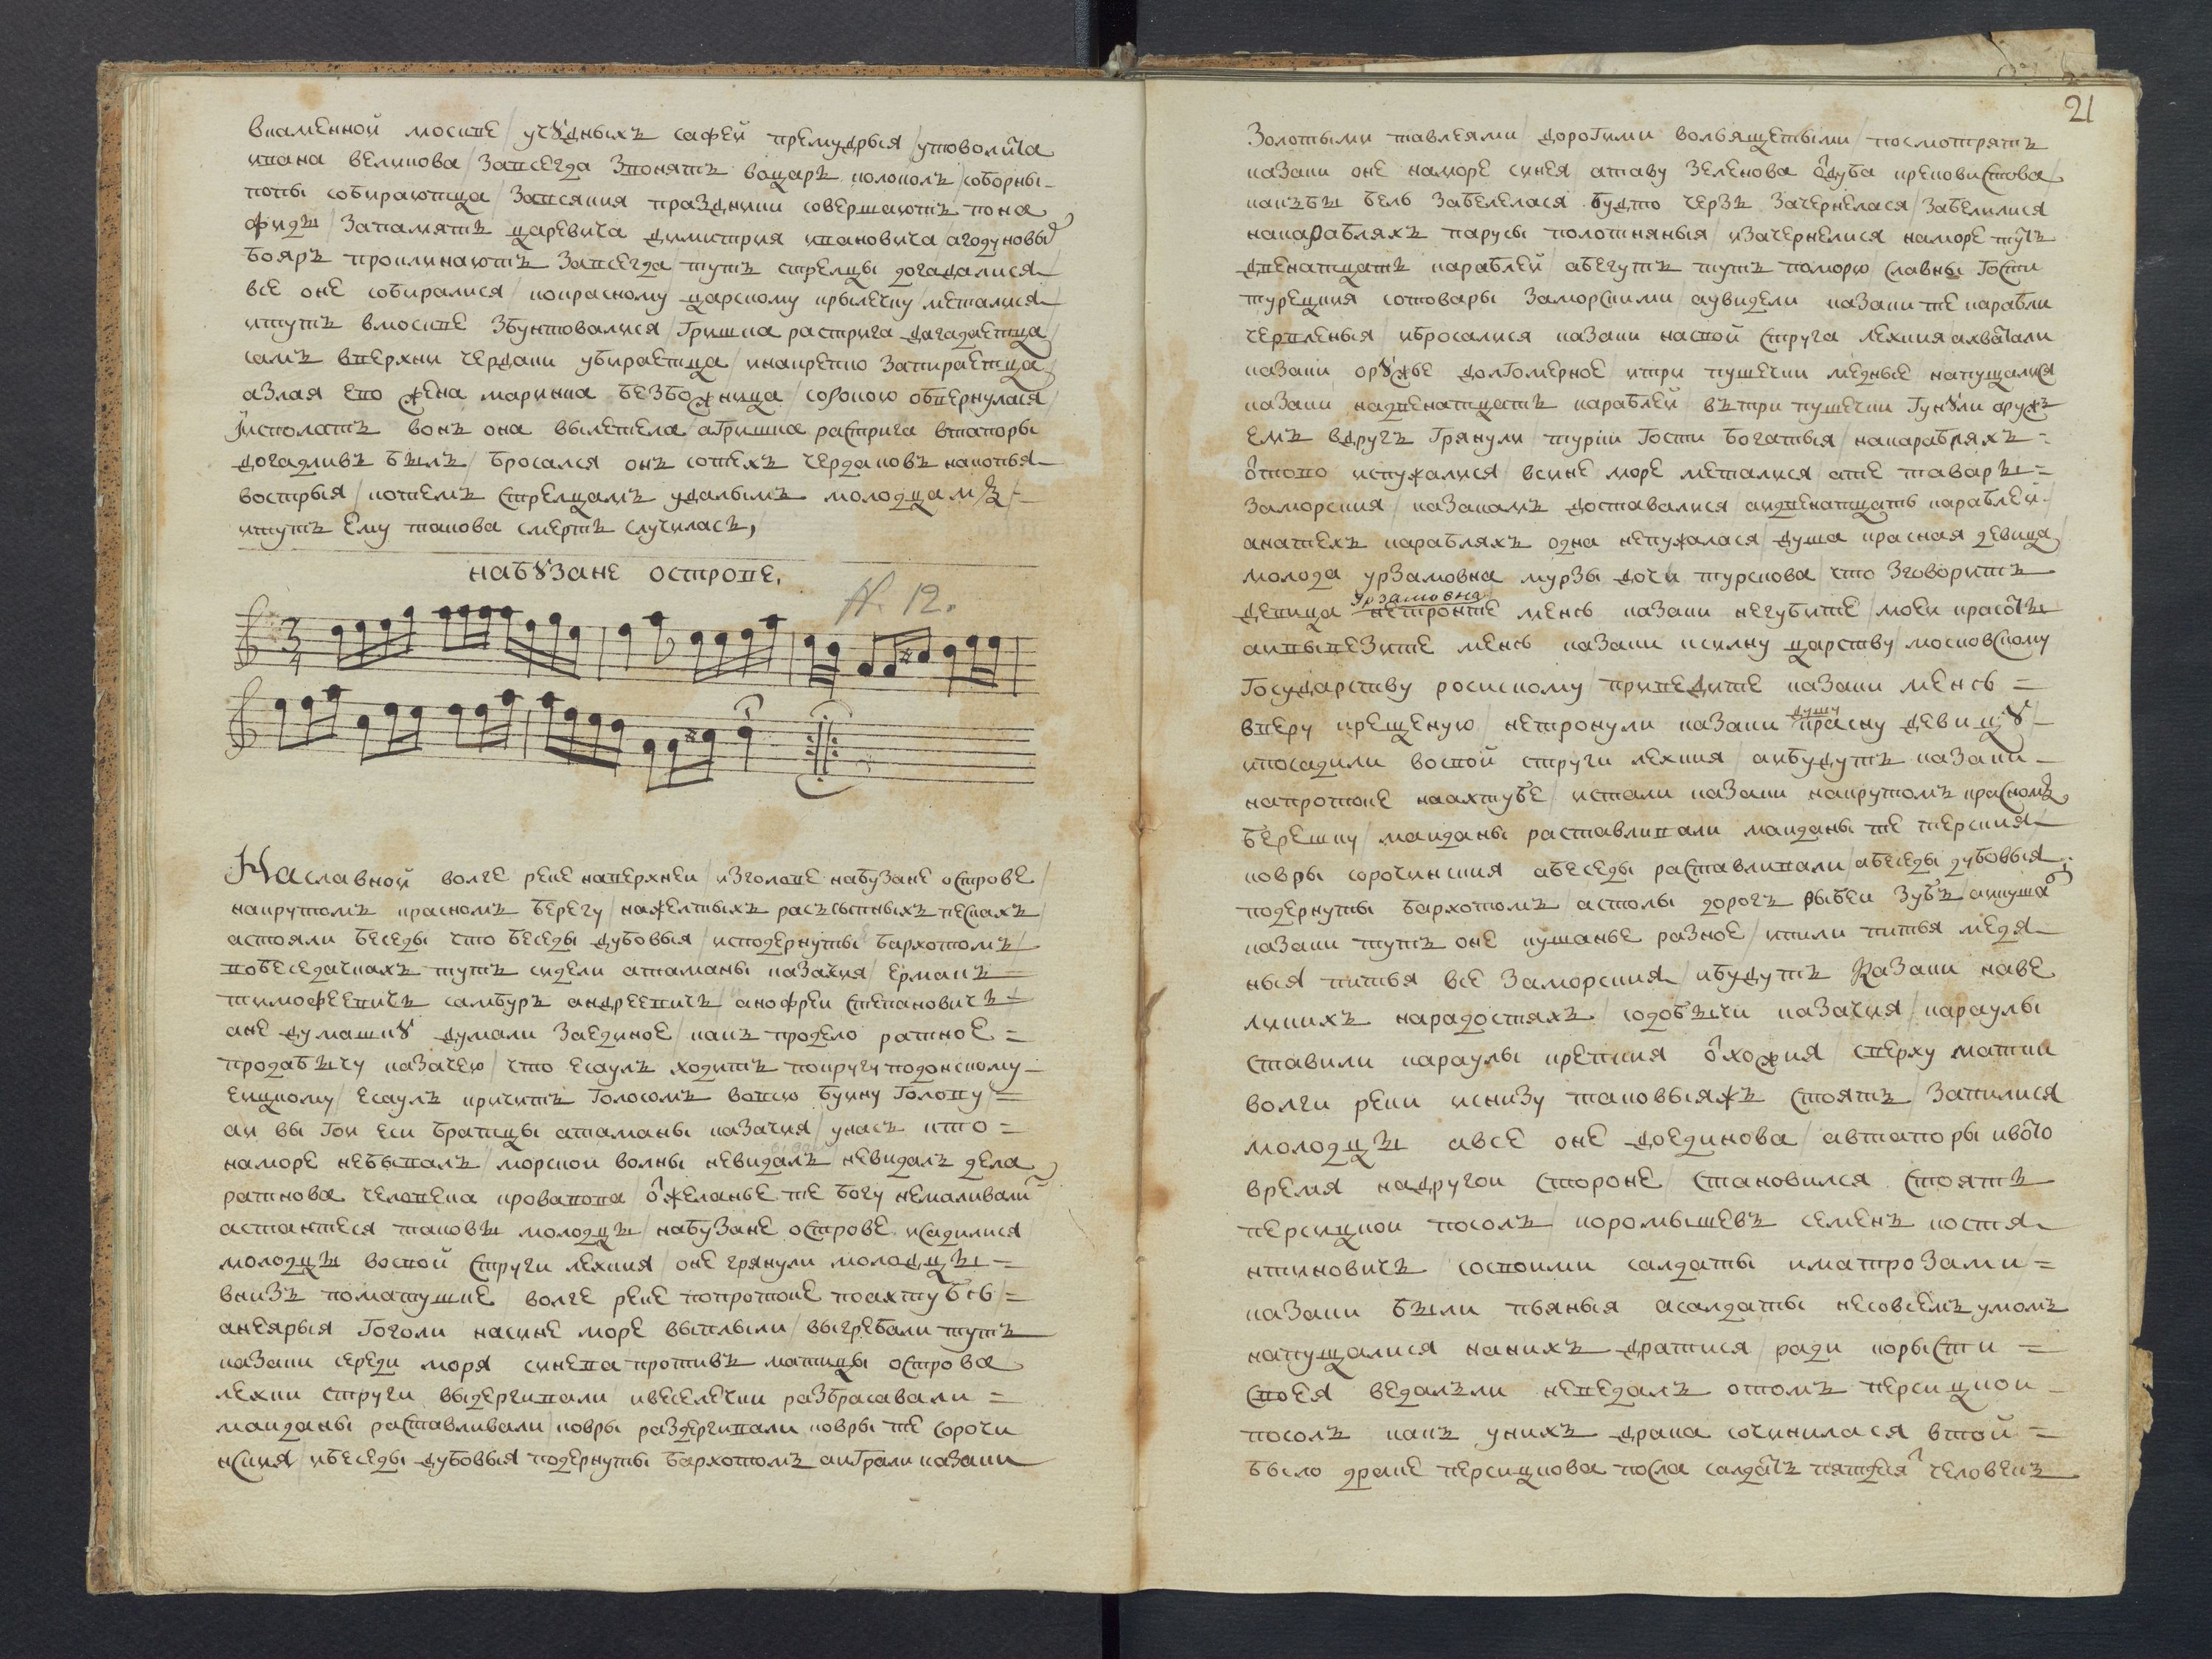 вкаменной москве / учꙋдныхъ сафей премудрыя / утоволиka
ивана великова / завсегда звонятъ воцарь колоколъ / соборны-
попы собираютца / завсякия празднини совершаютъ пона
фиды / запамять царевича димитрия ивановича / агодуновы
бояръ проклинаютъ завсегда тутъ стрелцы догадалися
все оне собиралися / кокрасному царскому крылечку / металися
итутъ вмоскве збунтовалися / гришка растрига дагадаетца
самъ вверхни чердаки убираетца / инакрепко запираетца
азлая ево жена маринка безбожница / сорокою обвернулася
ісполатъ вонъ она вылетела агришка растрига втапоры
догадливъ былъ / бросался онъ сотехъ чердаковъ накопья
вострыя / котемъ стрелцамъ удалымъ молодцамъ
итутъ ему такова смерть случилась,
набꙋзане острове.
N. 12.
На славной волге реке наверхней / изголове набузане острове /
накрутомъ красномъ берегу / нажелтыхъ расъсыпныхъ пескахъ /
астояли беседы что беседы дубовыя / исподернуты бархотомъ /
вобеседачкахъ тутъ сидели атаманы казачия / ермакъ
тимофеевичъ самбуръ андреевичъ / анофреи степановичъ
ане думашкꙋ думали заединое / какъ продело ратное =
продабычу казачею / что есаулъ ходитъ покругу подонскому-
еицкому / есаулъ кричитъ голосомъ вовсю буину голову =
аи вы гои еси братцы атаманы казачия / унасъ кто =
наморе небывалъ / морскои волны невидалъ невидалъ дела
ратнова человека кровавова / ожеланье те богу немаливали
астантеся таковы молодцы / набузане острове исадилися
молодцы восвои струги лехкия / оне грянули молодцы =
внизъ поматушке / волге реке попротоке поахтубѣ =
анеярыя гоголи насине море выплыли / выгребали тутъ
казаки середи моря синева противъ матицы острова
лехки струги выдергивали / ивеселечки разбрасавали =
маиданы раставливали / ковры раздергивали ковры те сорочи
нския / ибеседы дубовыя подернуты бархотомъ аиграли казаки
21
золотыми тавлеями / дорогими вольящетыми / посмотрятъ
казаки оне наморе синея атаву зеленова отдуба крековистова
какъбы бель забелелася будто черзь зачернелася / забелилися
накараблях парусы полотняныя / изачернелися наморе тутъ
двенатцать караблей / абегутъ тутъ поморю славны гости
турецкия сотовары заморскими / аувидели казаки те карабли
червленыя / ибросалися казаки насвои струга лехкия ахватали
казаки орꙋжье долгомерное / итри пушечки медные напущалися
казаки надвенатцать караблей въ три пушечки гунꙋли аруж
емъ вдругъ грянули / турки гости богатыя / накараблях =
отово испужалися / всине море металися ате таварꙑ =
заморския / казакамъ доставалися / аидвенатцать караблей
анатехъ караблях одна непужалася / душа красная девица
молода урзамовна мурзы дочи турскова / что зговоритъ
девица урзамовна нетроньте менѣ казаки негубите / моеи красоты
аивывезите менѣ казаки ксилну царству / московскому
государству росискому / приведите казаки менѣ =
вверу крещеную / нетронули казаки душу красну девицꙋ -
ипосадили восвои струги лехкия / аибудутъ казаки -
напротоке наахтубе / истали казаки накрутомъ красномъ
бережку / маиданы раставливали маиданы те терския
ковры сорочинския абеседы раставливали / абеседы дубовыя
подернуты бархотомъ / астолы дорогъ рыбеи зубъ / аикушали
казаки тутъ оне кушанье разное / ипили питья медя
ныя питья все заморския / ибудутъ казаки наве
ликихъ нарадостяхъ / содобычи казачия / караулы
ставили караулы крепкия отхожия / сверху матки
волги реки иснизу таковыяжъ стоятъ / запилися
молодцы авсе оне доединова / автапоры иво
время надругои стороне / становился стоять
персицкои посолъ / коромышевъ семенъ костя-
нтиновичъ / соспоими салдаты иматрозами =
казаки были пьяныя асалдаты несовсемъ умомъ
напущалися нанихъ дратися / ради корысти =
своея ведалъли неведалъ отомъ персицкои
посолъ какъ унихъ драка сочинилася втои =
было драке персицкова посла салдатъ пятдеся человекъ